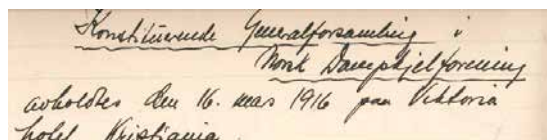 Konstituerende Generalforsamling i
Norsk Dampkjelforening
avholdtes den 16. mars 1916 paa Viktoria
hotel Kristiania.